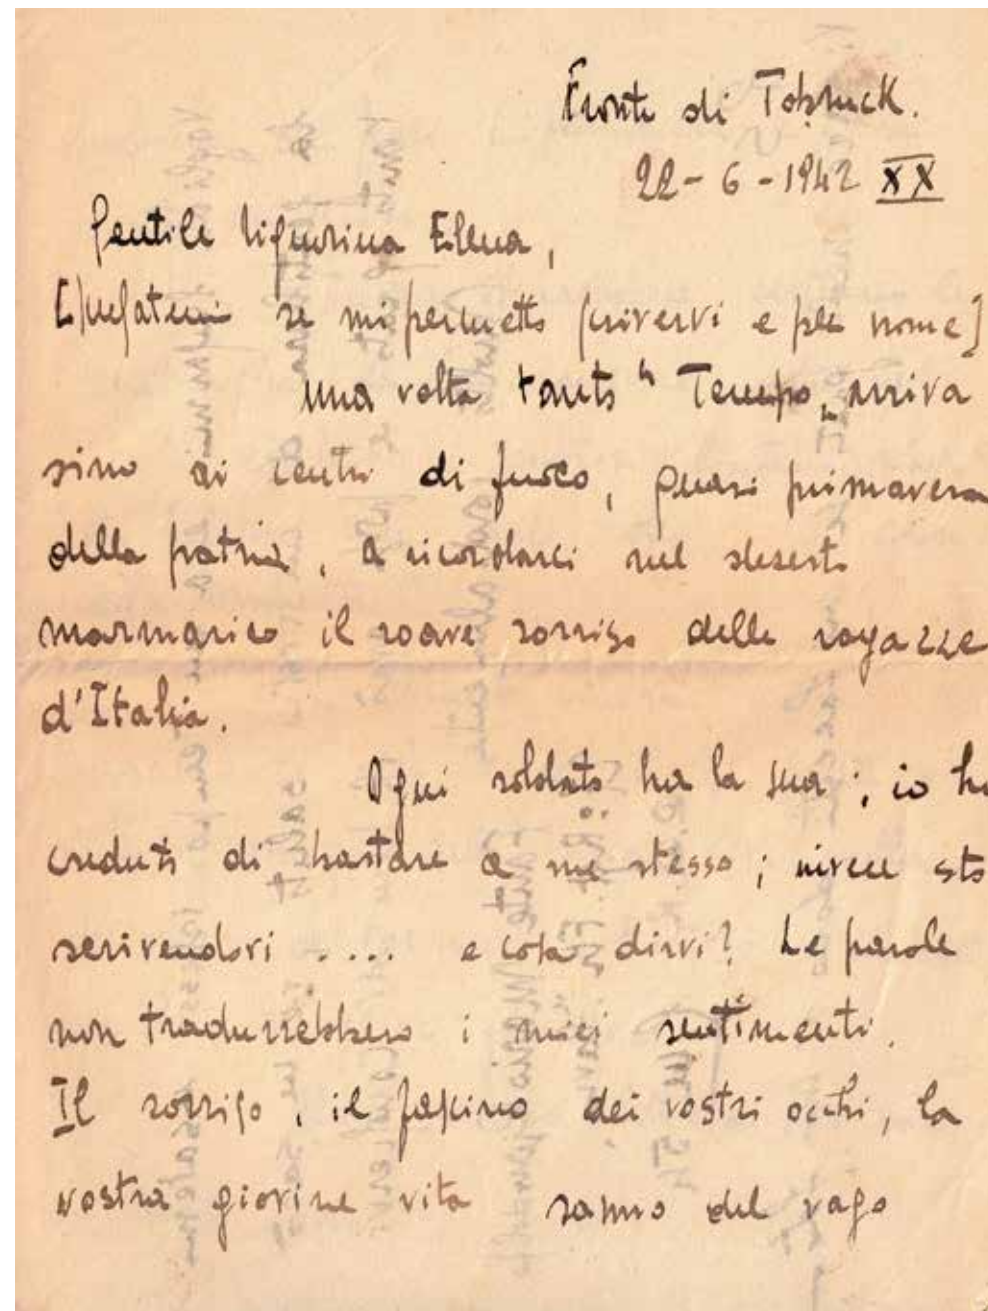 Fronte di Tobruck.
22-6-1942 XX
Gentile Signorina Elena,
[Scusatemi se mi permetto scrivervi e per nome]
una volta tanto "Tempo" arriva
sino ai centri di fuoco, quasi primavera
della patria, a ricordarci nel deserto
marmarico il soave sorriso delle ragazze
d'Italia.
Ogni soldato ha la sua; io ho
creduto di bastare a me stesso; invece sto
scrivendovi .... e cosa dirvi? Le parole
non tradurrebbero i miei sentimenti.
Il sorriso, il fascino dei vostri occhi, la
vostra giovine vita sanno del vago